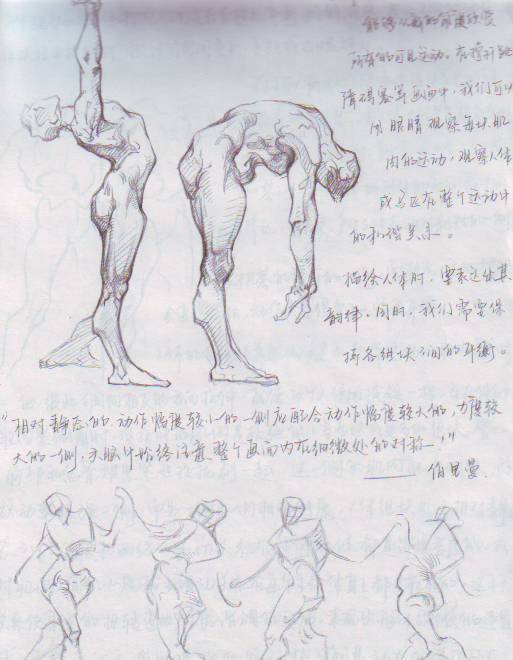 能够从新的角度欣赏
所有的可见运动。在撑杆跳
障碍赛等画面中,我们可以
用眼睛观察每块肌
肉的运动,观察人体
成员在整个运动中
的和谐关系。
描绘人体时,要表达出其
韵律,同时,我们需要保
持各组块之间的平衡。
“相对静态的、动作幅度较小的一侧应配合动作幅度较大的、力度较
大的一侧,头脑中始终注意整个画面内在细微处的对称!”
——伯里曼.